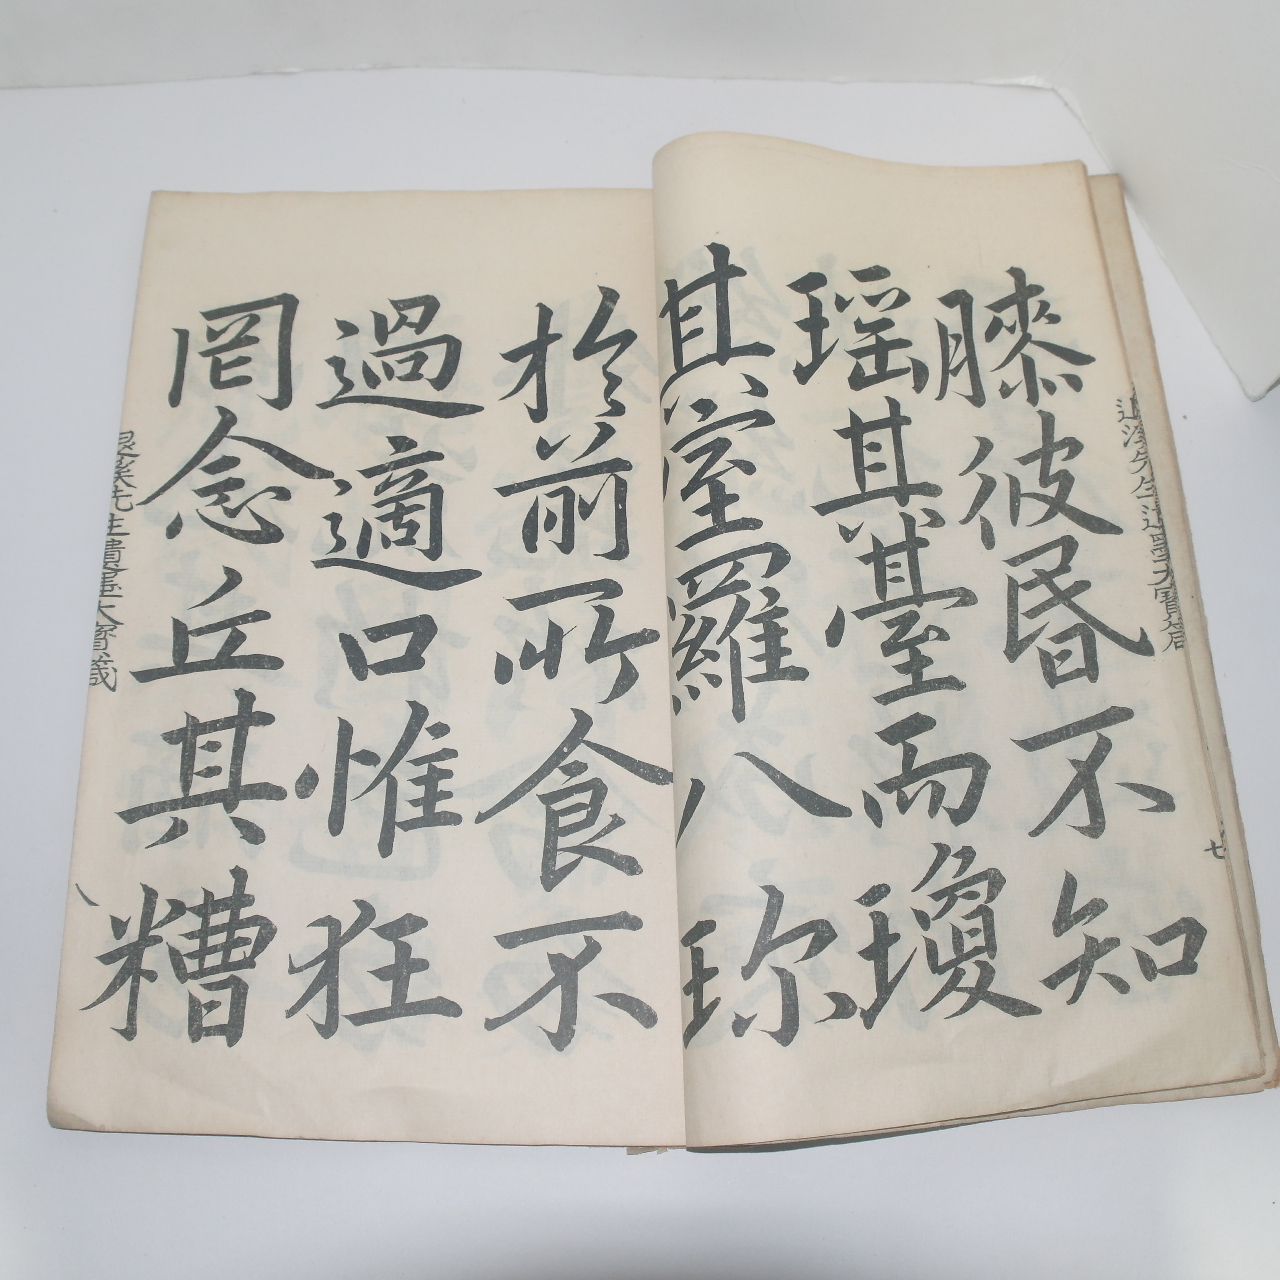 膝彼昏不知
瑶其臺而瓊
其室羅八珍
於前所食不
過適口惟狂
罔念丘其糟
退溪先生遺墨大寶箴
七
退溪先生遺墨大寶箴